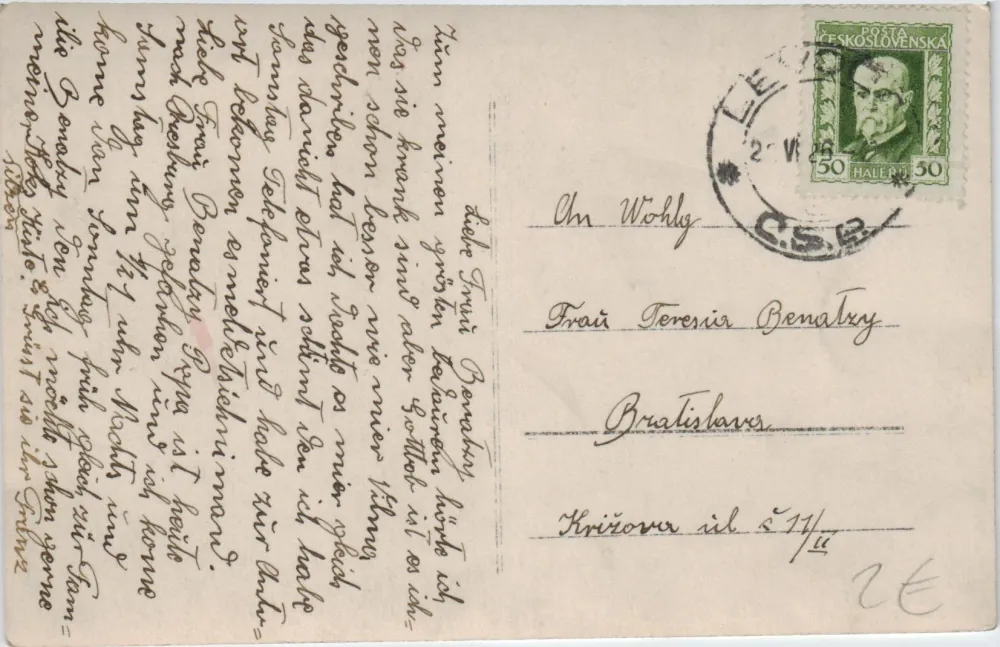 Liebe Frau Benatzy
Zum meinen grösten bedauern hörte ich
das sie krank sind aber Gottlob ist es ich-
nen schon besser wie mier Vilma
geschriben hat ich dachte es mier gleich
das da nicht etwas schtimt den ich habe
Samstag Telefoniert und habe zur Antw-
ort bekomen es meldet sich nimand.
Liebe Frau Benatzy Papa ist heute
nach Presburg gefahren und ich kome
Samstag um 1/2 1 uhr Nachts und
kome dan Sonntag früh gleich zür Fam-
ilie Benatzy den ich möchte schon gerne
meine
Grüsst sie ihr Franz
POSTA
ČESKOSLOVENSKÁ
50 HALÉŘŮ 50
VI 26
Č.S.R.
An Wohlg
Frau Teresia Benatzy
Bratislava
Križova úl č 11/II
2€